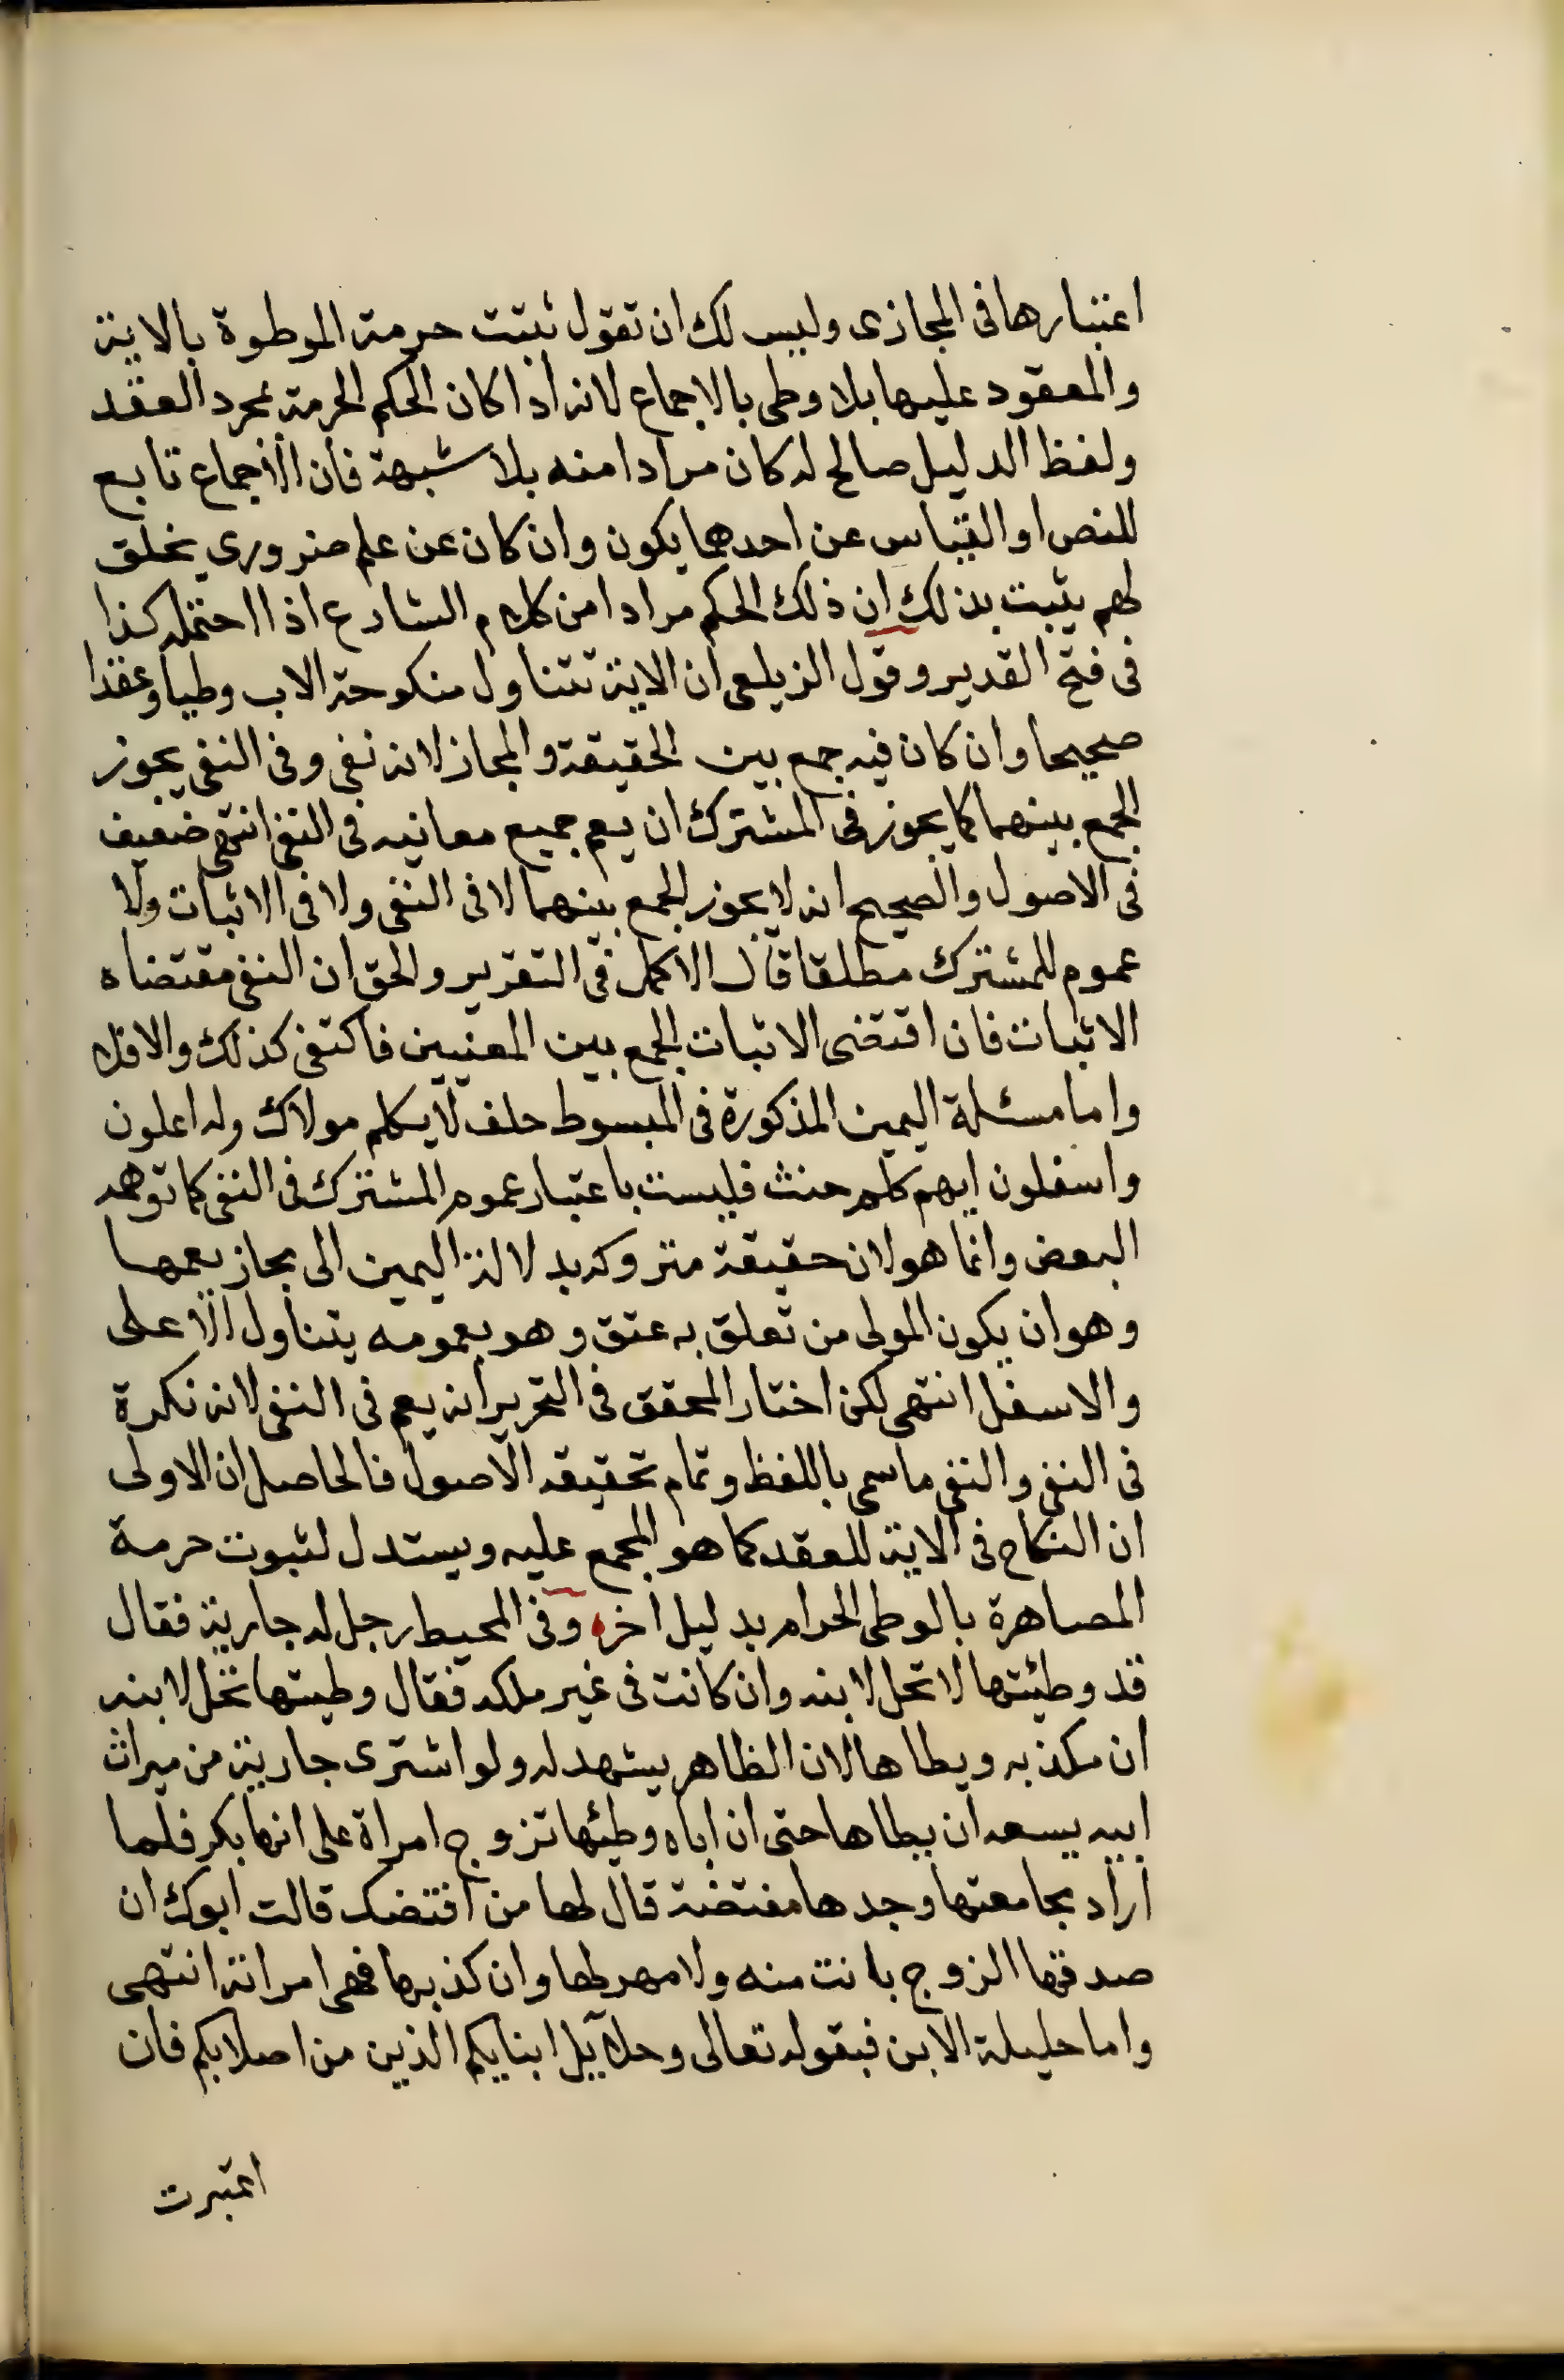 اعتبارها فى المجازى وليس لك ان تقول ثبتت حرمة الموطوة بالاية
والمعقود عليها بلا وطى بالاجماع لانه اذا كان الحكم الحرمة بمجرد العقد
ولفظ الدليل صالح له كان مرادا منه بلا شبهة فان الاجماع تابع
للنص او القياس عن احدهما يكون وان كان عن علم ضرورى يخلق
لهم يثبت بذلك ان ذلك الحكم مرادا من كلام الشارع اذا احتمله كذا
فى فتح القدير وقول الزيلعى ان الاية تتناول منكوحة الاب وطيا وعقدا
صحيحا وان كان فيه جمع بين الحقيقة والمجاز لانه نفى وفى النفى يجوز
الجمع بينهما كما يجوز فى المشترك ان يعم جميع معانيه فى النفى انتهى ضعيف
فى الاصول والصحيح انه لا يجوز الجمع بينهما لا فى النفى ولا فى الاثبات ولا
عموم للمشترك مطلقا قال الاكمل فى التقرير والحق ان النفى مقتضاه
الاثبات فان اقتضى الاثبات الجمع بين المعنيين فاكتفى كذلك والا فلا
واما مسئلة اليمين المذكورة فى المبسوط حلف لا يكلم مولاك وله اعلون
واسفلون ايهم كلم حنث فليست باعتبار عموم المشترك فى النفى كما توهمه
البعض وانما هو لان حقيقة متروكه بدلالة اليمين الى مجاز يعمها
وهو ان يكون المولى من تعلق به عتق وهو بعمومه يتناول الاعلى
والاسفل انتهى لكن اختار المحقق فى التحرير انه يعم فى النفى لانه نكرة
فى النفى والنفى ماسمى باللفظ وتمام تحقيقه الاصول فالحاصل ان الاولى
ان النكاح فى الاية للعقد كما هو المجمع عليه ويستدل لثبوت حرمة
المصاهرة بالوطى الحرام بدليل اخر وفى المحيط رجل له جارية فقال
قد وطئتها لا تحل لابنه وان كانت فى غير ملكه فقال وطيتها تحل لابنه
ان مكذبه ويطاها لان الظاهر يشهد له ولو اشترى جارية من ميراث
ابيه يسعه ان يطاها حتى ان اباه وطئها تزوج امراة على انها بكر فلما
اراد مجامعتها وجدها مفتضة قال لها من افتضك قالت ابوك ان
صدقها الزوج بانت منه ولا مهر لها وان كذبها فهى امراته انتهى
واما حليلة الابن فبقوله تعالى وحلآيل ابنايكم الذين من اصلابكم فان
اعتبرت